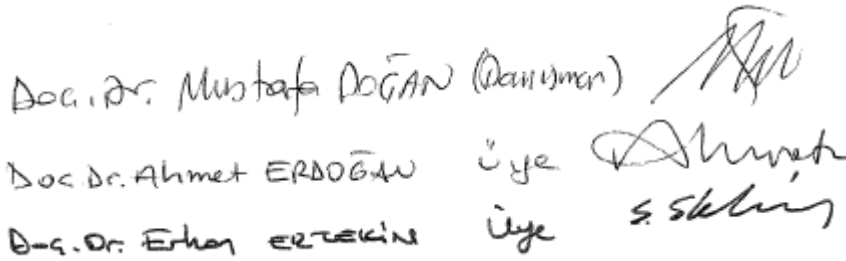 Doç. Dr. Mustafa DOĞAN (Danışman)
Doç. Dr. Ahmet ERDOĞAN Üye
Doç. Dr. Erhan ERTEKİN Üye